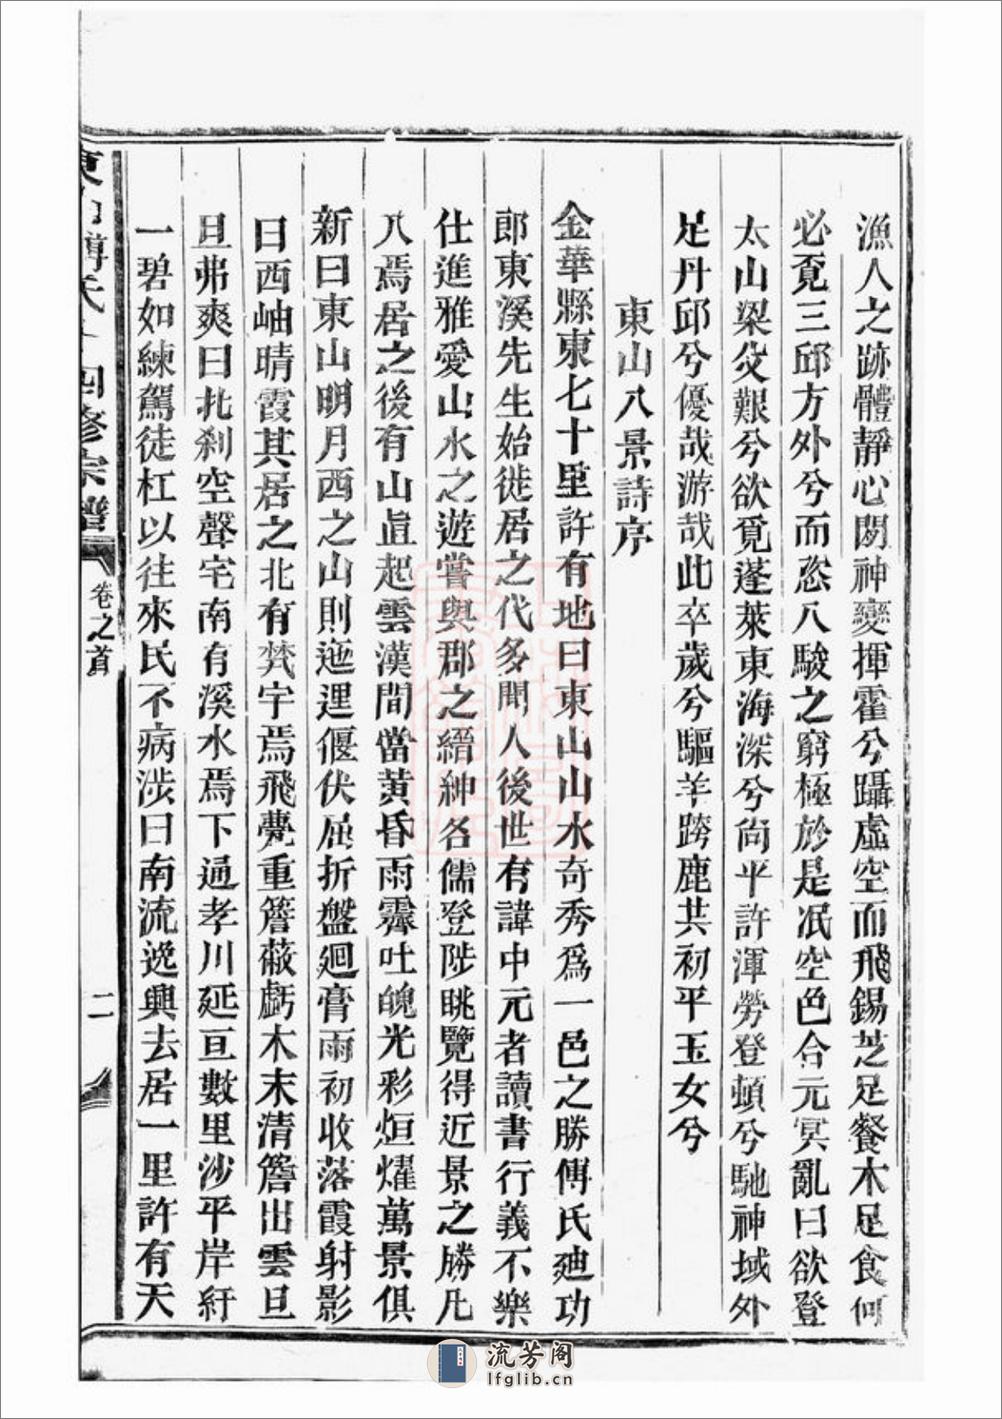 漁人之跡體靜心閒神變揮霍兮躡虛空而飛錫芝足餐木足食何
必覔三邱方外兮而恣八駿之窮極於是泯空色合元冥亂曰欲登
太山梁父艱兮欲覓蓬萊東海深兮尙平許渾勞登頓兮馳神域外
足丹邱兮優哉游哉此卒歲兮驅羊跨鹿共初平玉女兮
東山八景詩序
金華縣東七十里許有地曰東山山水奇秀爲一邑之勝傅氏廸功
郎東溪先生始徙居之代多聞人後世有諱中元者讀書行義不樂
仕進雅愛山水之遊嘗與郡之縉紳名儒登陟眺覽得近景之勝凡
八焉居之後有山直起雲漢間當黃昏雨霽吐魄光彩烜燿萬景俱
新曰東山明月西之山則迤邐偃伏屈折盤廻膏雨初收落霞射影
曰西岫晴霞其居之北有梵宇焉飛甍重簷蔽虧木末清簷出雲旦
旦弗爽曰北刹空聲宅南有溪水焉下通孝川延亘數里沙平岸紆
一碧如練駕徒杠以往來民不病涉曰南流逸興去居一里許有天
東山傅氏 四修宗譜
卷之首
二
流芳阁
lfglib.cn